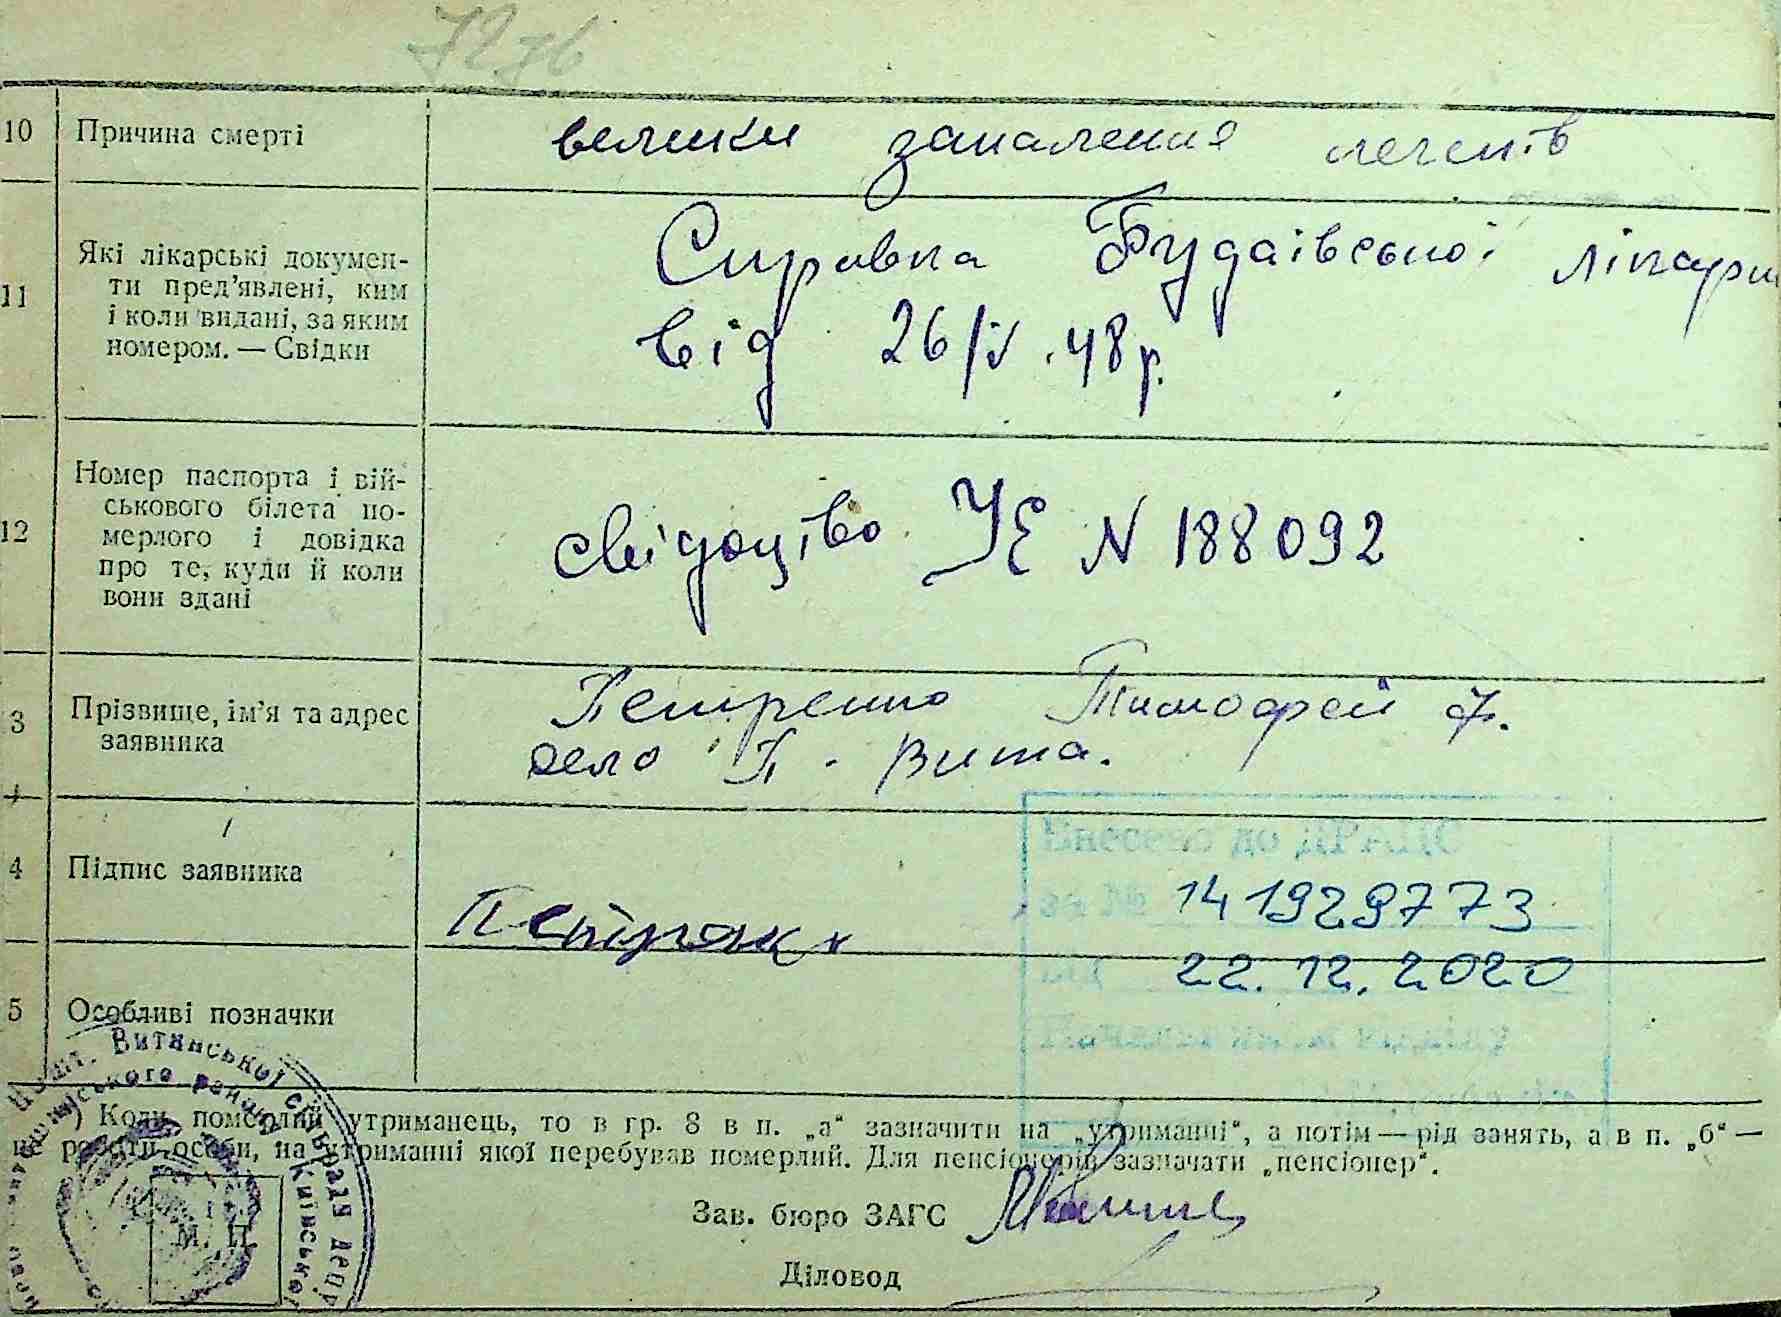 7276
10 Причина смерті велике запалення легенів
11 Які лікарські докумен-
ти пред'явлені, ким
і коли видані, за яким
номером. — Свідки
Справка Будаівської лікарні
від 26/V.48 р.
12 Номер паспорта і вій-
ськового білета по-
мерлого і довідка
про те, куди й коли
вони здані
свідоцтво УЕ N 188092
3 Прізвище, ім'я та адрес
заявника
Петренко Тимофей Ф.
село П-Вита.
4 Підпис заявника
Внесено до ДРАЦС
за № 141929773
від 22.12.2020
5 Особливі позначки
Витянської сільради депу
Київської
) Коли померлий утриманець, то в гр. 8 в п. „а“ зазначити на „утриманні“, а потім — рід занять, а в п. „б“ —
роботи особи, на утриманні якої перебував померлий. Для пенсіонерів зазначати „пенсіонер“.
Зав. бюро ЗАГС
М. П.
Діловод